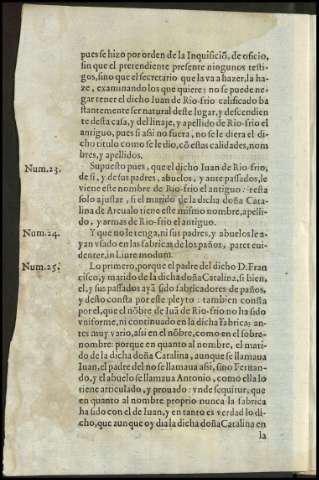 pues se hizo por orden de la Inquisiciõ, de oficio,
sin que el pretendiente presente ningunos testi
gos, sino que el secretario que la va a hazer, la ha-
ze, examinando los que quiere: no se puede ne-
gar tener el dicho Iuan de Rio-frio calificado ba
stantemente ser natural deste lugar, y descendien
te desta casa, y del linaje, y apellido de Rio-frio el
antiguo, pues si assi no fuera, no se le diera el di-
cho titulo como se le dio, cõ estas calidades, nom
bres, y apellidos.
Num.23. Supuesto pues, que el dicho Iuan de Rio-frio,
de si, y de sus padres, abuelos, y antepassados, le
viene este nombre de Rio-frio el antiguo: resta
solo ajustar, si el marido de la dicha doña Cata
lina de Arcualo tiene este mismo nombre, apelli-
do, y armas de Rio-frio el antiguo.
Num.24. Y que no le tenga, ni sus padres, y abuelos le a-
yan vsado en las fabricas de los paños, paret eui-
denter, in Iure modum.
Num.25. Lo primero, porque el padre del dicho D. Fran
cisco, y marido de la dicha doña Catalina, si bien
el, y sus passados ayã sido fabricadores de paños,
y desto consta por este pleyto: tambien consta
por el, que el nõbre de Iuã de Rio-frio no ha sido
vniforme, ni continuado en la dicha Fabrica: an-
tes muy vario, assi en el nõbre, como en el sobre-
nombre: porque en quanto al nombre, el mati-
do de la dicha doña Catalina, aunque se llamaua
Iuan, el padre del no se llamaua assi, sino Fernan-
do, y el abuelo se llamaua Antonio, como ella lo
tiene articulado, y prouado: vnde sequitur, que
en quanto al nombre proprio nunca la fabrica
ha sido con el de Iuan, y en tanto es verdad lo di-
cho, que aunque oy dia la dicha doña Catalina en
la